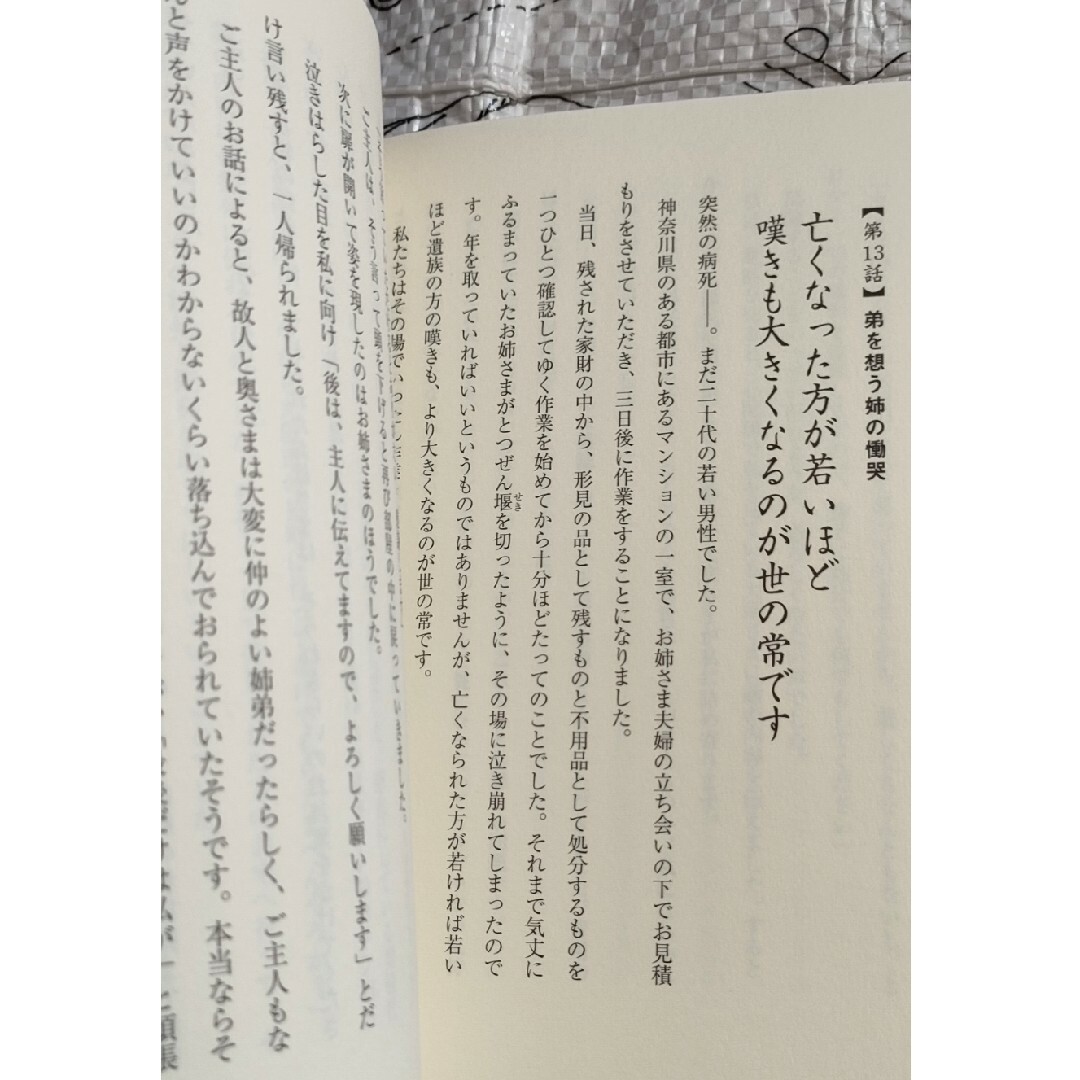 【第13話】弟を想う姉の慟哭
亡くなった方が若いほど
嘆きも大きくなるのが世の常です
突然の病死――。まだ二十代の若い男性でした。
神奈川県のある都市にあるマンションの一室で、お姉さま夫婦の立ち会いの下でお見積
もりをさせていただき、三日後に作業をすることになりました。
当日、残された家財の中から、形見の品として残すものと不用品として処分するものを
一つひとつ確認してゆく作業を始めてから十分ほどたってのことでした。それまで気丈に
ふるまっていたお姉さまがとつぜん堰を切ったように、その場に泣き崩れてしまったので
せき
す。年を取っていればいいというものではありませんが、亡くなられた方が若ければ若い
ほど遺族の方の嘆きも、より大きくなるのが世の常です。
私たちはその場でいった
ご主人は、そう
次に扉が開いて姿を現したのはお姉さまのほうでした。
泣きはらした目を私に向け「後は、主人に伝えてますので、よろしく願いします」とだ
け言い残すと、一人帰られました。
ご主人のお話によると、故人と奥さまは大変に仲のよい姉弟だったらしく、ご主人もな
んと声をかけていいのかわからないくらい落ち込んでおられていたそうです。本当ならそ